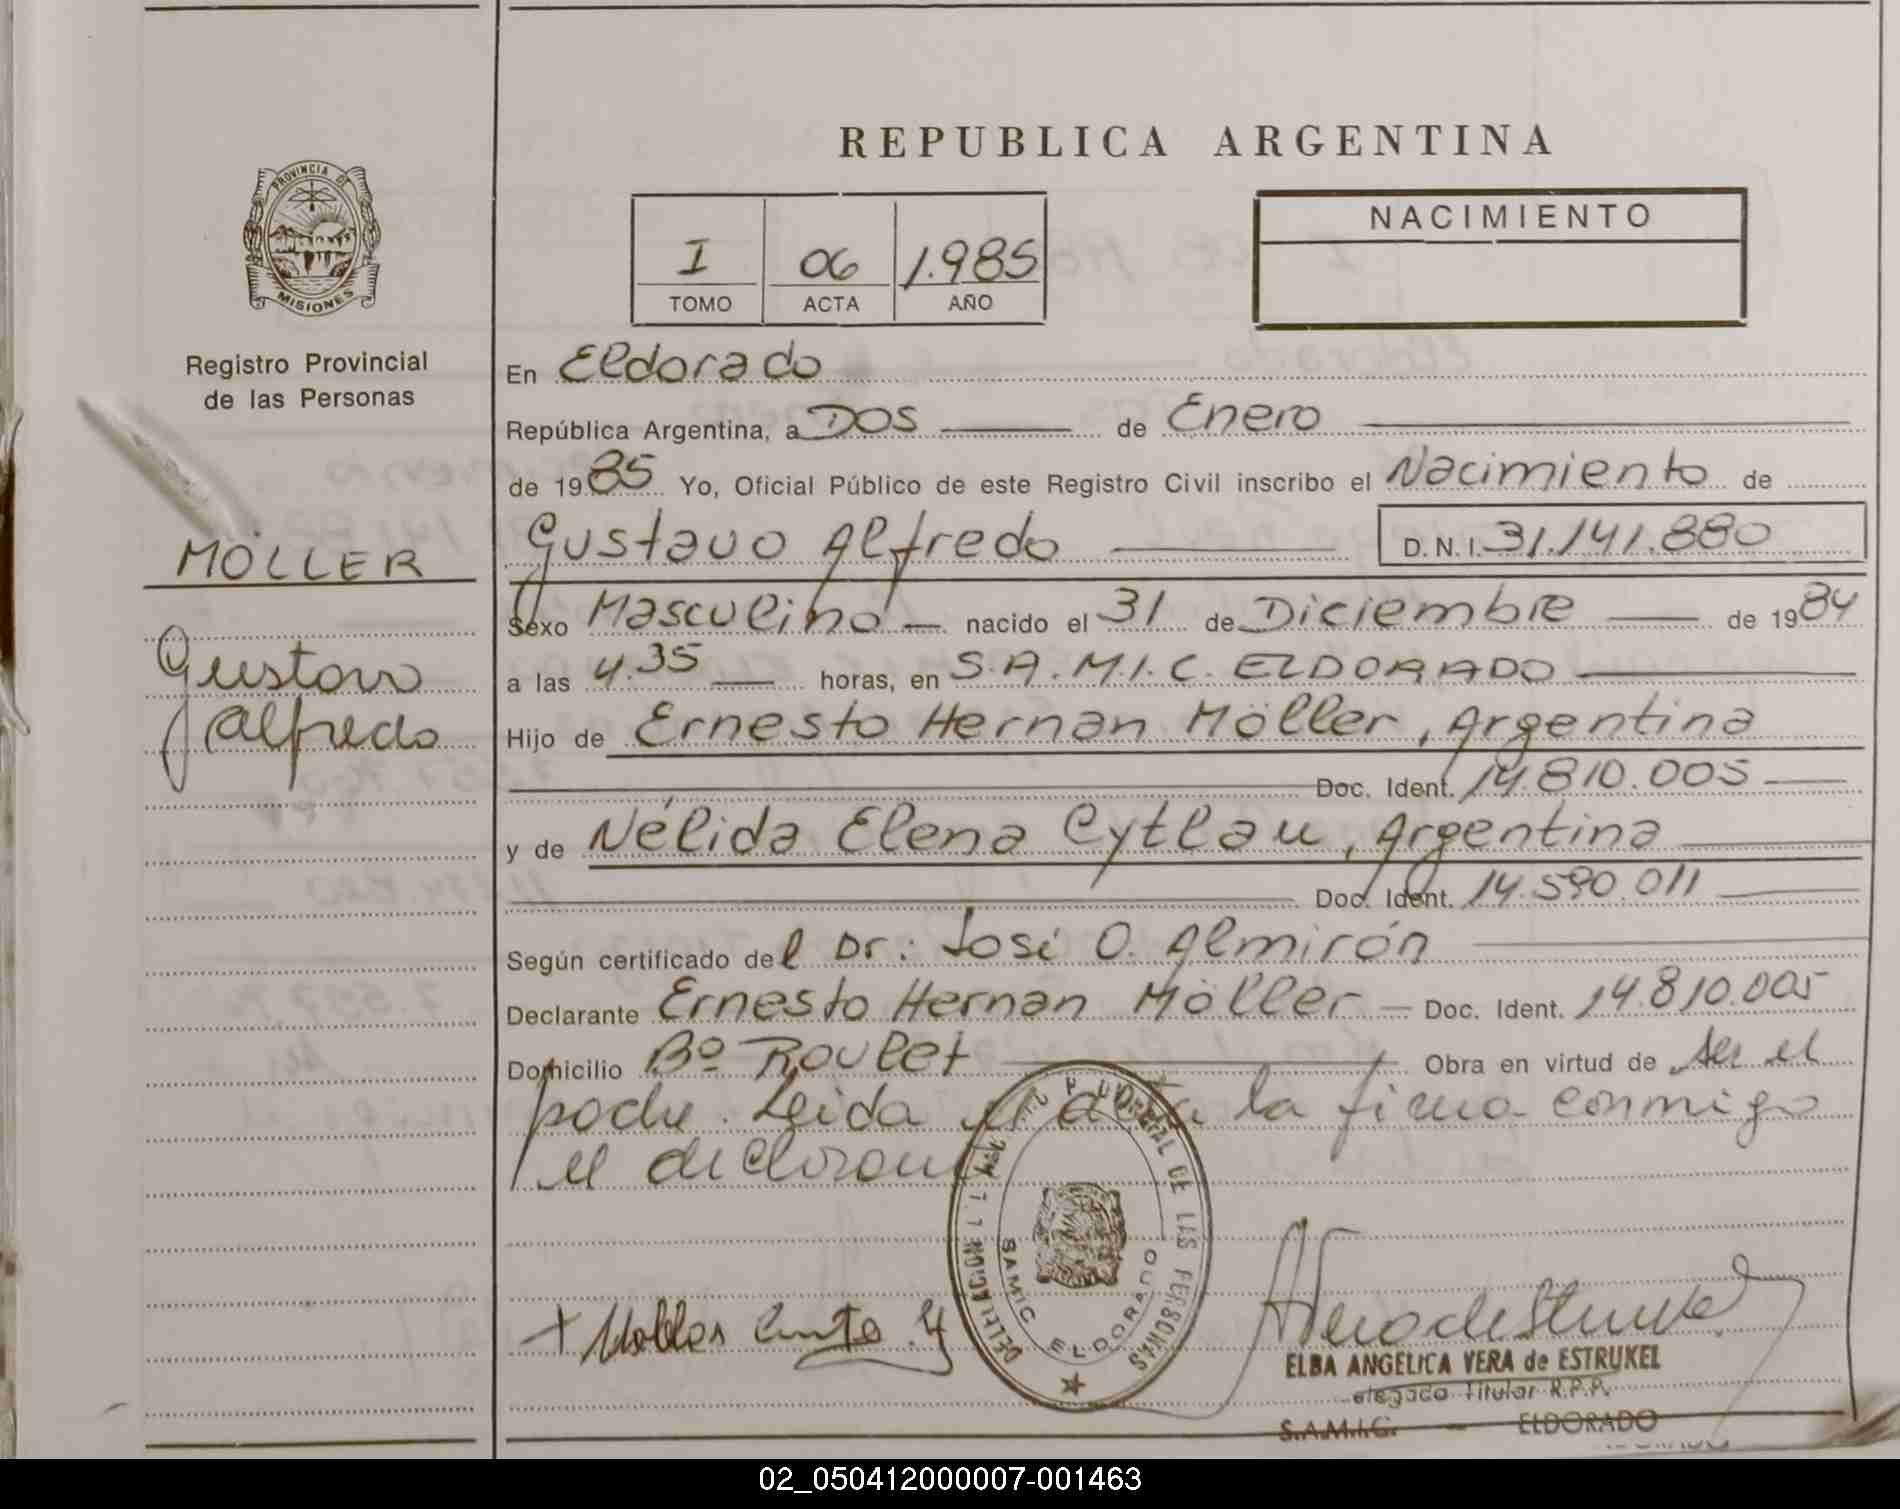 REPUBLICA ARGENTINA
PROVINCIA DE
MISIONES
Registro Provincial
de las Personas
I 06 1.985
TOMO ACTA AÑO
NACIMIENTO
MÖLLER
Gustavo
Alfredo
En Eldorado
República Argentina, a DOS de Enero
de 1985 Yo, Oficial Público de este Registro Civil inscribo el Nacimiento de
Gustavo Alfredo D.N.I. 31.141.880
Sexo Masculino nacido el 31 de Diciembre de 1984
a las 4.35 horas, en S.A.M.I.C. ELDORADO
Hijo de Ernesto Hernan Möller, Argentina
Doc. Ident. 14.810.005
y de Nélida Elena Cytlau, Argentina
Doc. Ident. 14.590.011
Según certificado del Dr: José O. Almirón
Declarante Ernesto Hernan Möller Doc. Ident. 14.810.005
Domicilio Bº Roulet Obra en virtud de ser el
padre. Leida el acta la firma conmigo
el declarante
SAMIC ELDORADO
DE LAS PERSONAS
ELBA ANGÉLICA VERA de ESTRUKEL
elegado Titular R.P.P.
S.A.M.I.C. - ELDORADO
02_050412000007-001463